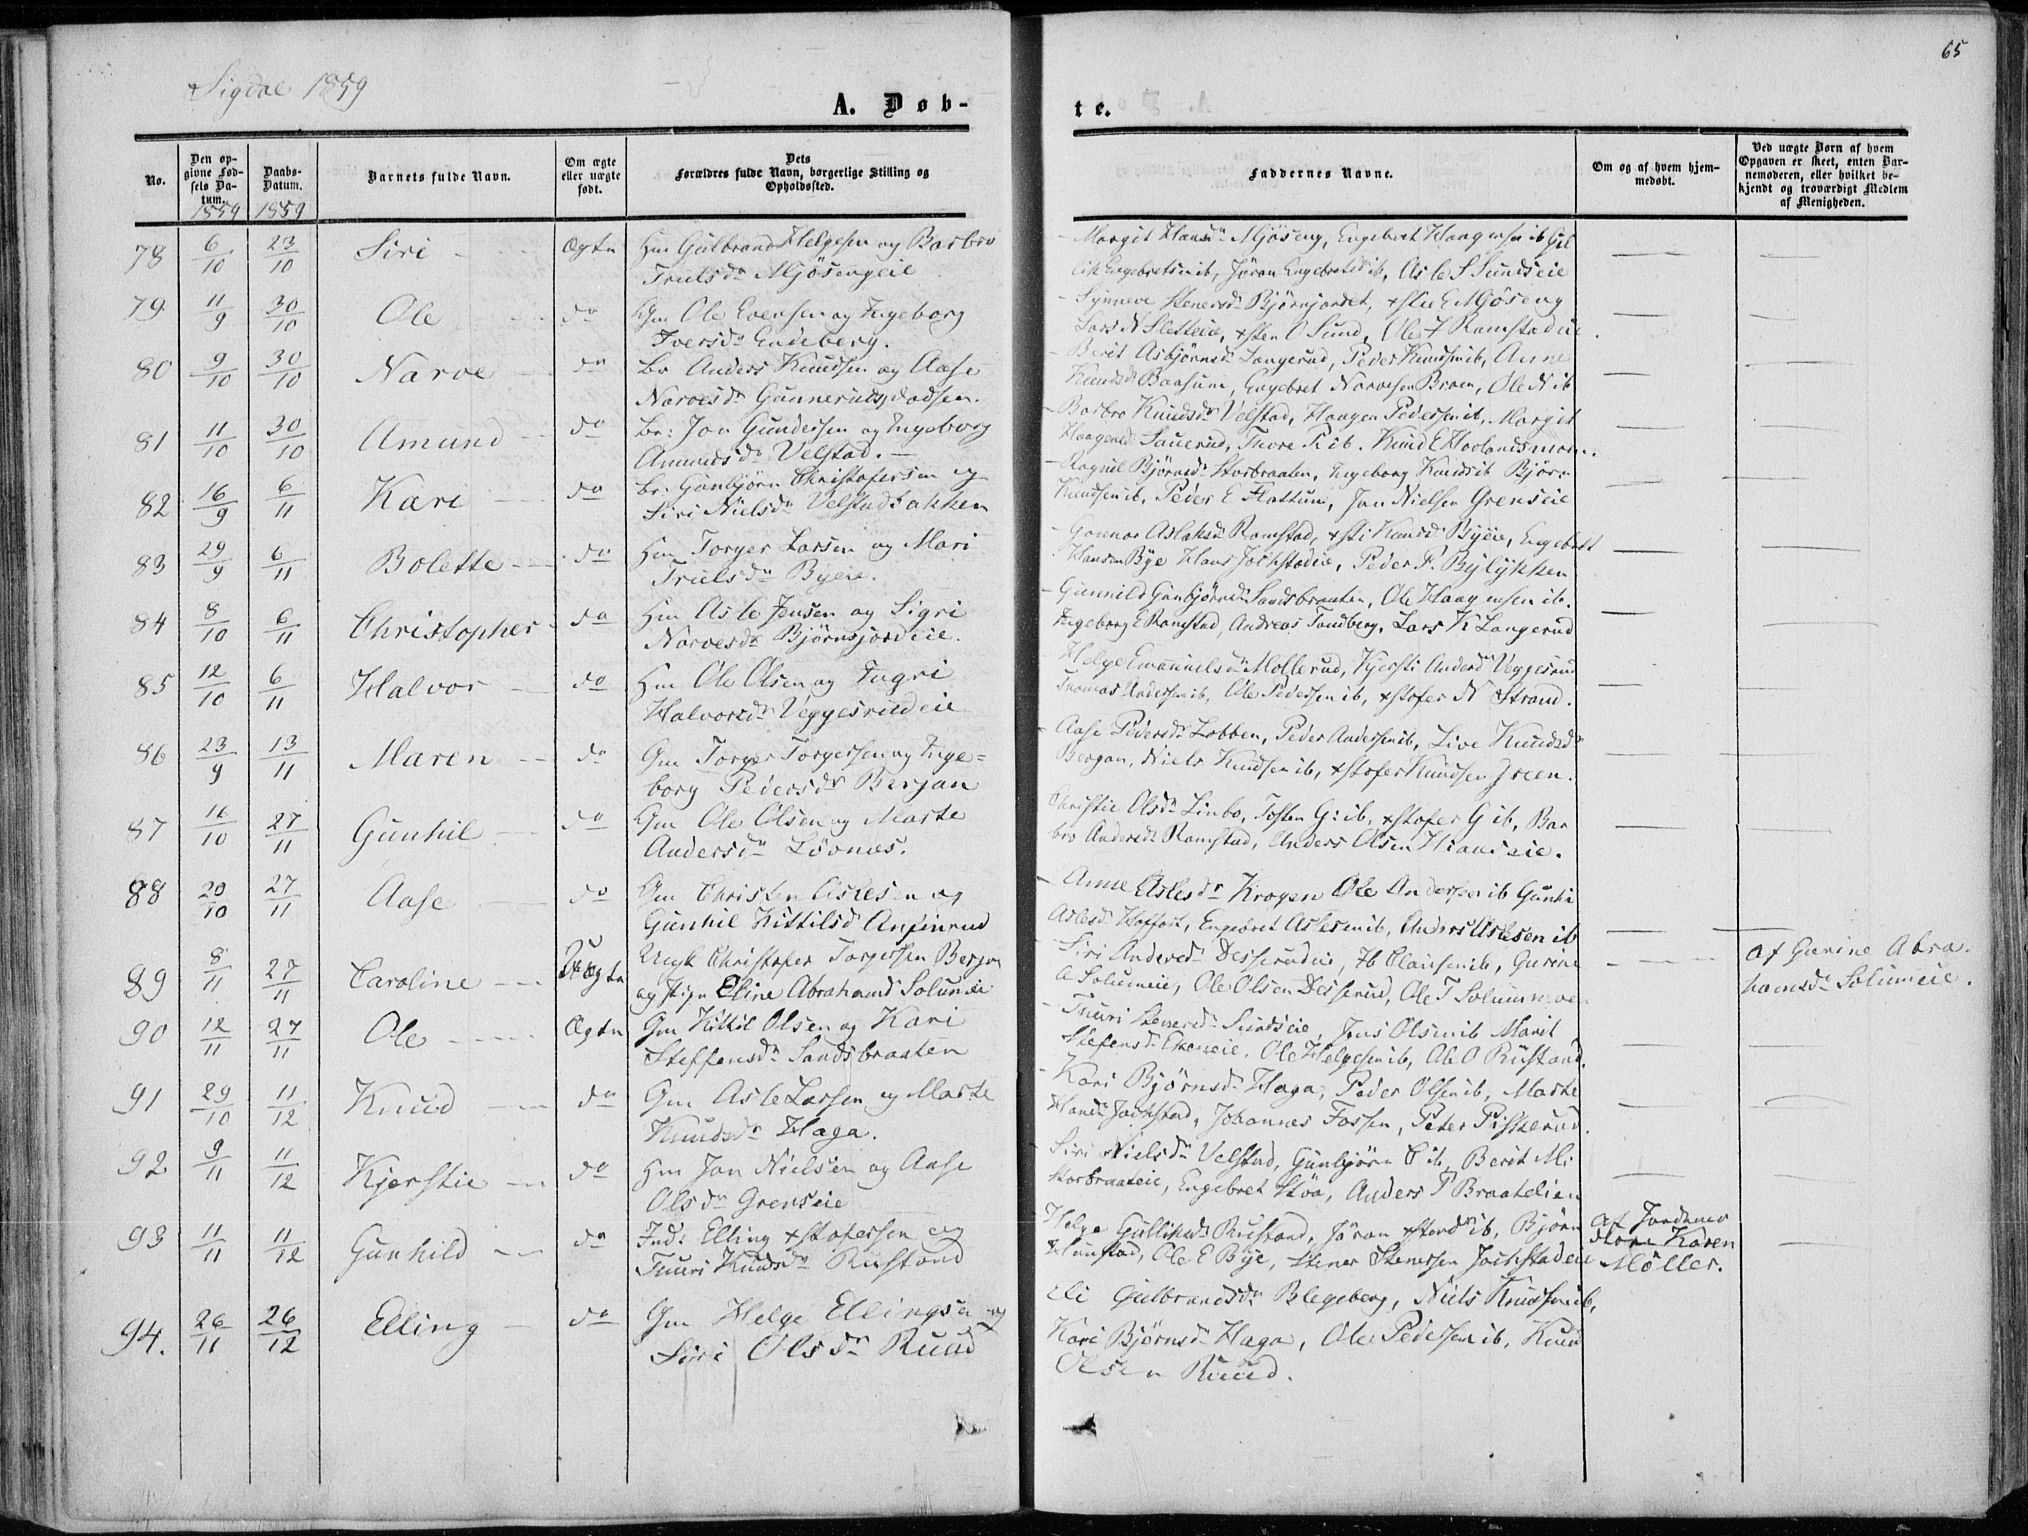 65
Sigdal 1859
A. Døb-
te.
No.
Den op-
givne Fød-
sels Da-
tum.
1859
Daabs-
Datum.
1859
Barnets fulde Navn.
Om ægte
eller uægte
født.
Dets
Forældres fulde Navn, borgerlige Stilling og
Opholdssted.
Faddernes Navne.
Om og af hvem hjem-
medøbt.
Ved uægte Børn af hvem
Opgaven er skeet, enten Bar-
nemoderen, eller hvilket be-
kjendt og troværdigt Medlem
af Menigheden.
78 6/10 23/10 Siri Ægte Hm Gulbrand Helgesen og Barbro
Trulsdr Mjøsengeie
Margit Hansdr Mjøseng, Engebret Haagensen ib
Engebretsen ib, Jøran Engebretsd ib, Asle S Sundseie
79 11/9 30/10 Ole do Gm Ole Evensen og Ingeborg
Iversdr Endeberg.
Synneve Stenersdr Bjørnjordet, E Mjøseng
Lars N Sletteeie, Sten O Sund, Ole T Ramstadeie
80 9/10 30/10 Narve do Br Anders Knudsen og Aase
Narvesdr Gunnerud
Berit Asbjørnsdr Langerud, Peder Knudsen ib, Anne
Knudsdr Baasum, Engebret Narvesen Braen, Ole N ib
81 11/10 30/10 Amund do Br: Jon Gundersen og Ingeborg
Amundsdr Velstad.
Barbro Knudsdr Velstad, Haagen Pedersen ib, Margit
Haagensd Sauerud, Thore P ib. Knud E Hovlandsmoen.
82 16/9 6/11 Kari do Br: Gunbjørn Christofersen og
Siri Nielsdr Velstadbakken
Ragnil Bjørnsdr Storbraaten, Ingeborg Knudsd ib Bjørn
Knudsen ib, Peder E Flattum, Jon Nielsen Grenseie
83 29/9 6/11 Bolette do Hm Torger Larsen og Mari
Trulsdr Byeie.
Gunnor Aslaksd Ramstad, Knudsdr Byeie, Engebret
Hansen Bye Hans Jockstadeie, Peder P. Byløkken
84 8/10 6/11 Christopher do Hm Asle Jensen og Sigri
Narvesdr Bjørnsjordeie.
Gunnild Gunbjørnsdr Sandsbraaten, Ole Haagensen ib.
Ingeborg E Ramstad, Andreas Tandberg, Lars K Langerud
85 12/10 6/11 Halvor do Hm Ole Olsen og Ingri
Halvorsdr Veggesrudeie
Helge Emanuelsdr Mollerud, Kjersti Andersdr Veggesrud
Thomas Andersen ib, Ole Pedersen ib, Xstofer N Strand.
86 23/9 13/11 Maren do Gm Torger Torgersen og Inge-
borg Pedersdr Bergan
Aase Pedersdr Lobben, Peder Andersen ib, Live Knudsdr
Bergan, Niels Knudsen ib, Xstofer Knudsen Green.
87 16/10 27/11 Gunhil do Gm Ole Olsen og Marte
Andersdr Løvnæs.
Christie Olsdr Linbo, Tosten G: ib, Xstofer G ib, Bar
bro Andersdr Ramstad, Anders Olsen
88 20/10 27/11 Aase do Gm Christen Aslesen og
Gunhil Kittilsd Anfinrud
Anne Aslesdr Krogen Ole Andersen ib Gunhi
Aslesdr Hoffart, Engebret Aslesen ib, Anders Aslesen ib
89 8/11 27/11 Caroline Uægte Ungk Christofer Torgersen Bergan
og Pige Eline Abrahamsd Solumeie
Siri Andersdr Desserudeie, Clausen ib, Gurine
A Solumeie, Ole Olsen Desserud, Ole T Solummoen
af Gurine Abra-
hamsdr Solumeie.
90 12/11 27/11 Ole Ægte Gm Kittil Olsen og Kari
Steffensdr Sandsbraaten
Thuri Stenersdr Sundseie, Jens Olsen ib Marit
Stefensdr Ekeneie, Ole Helgesen ib, Ole O Rustand.
91 29/10 11/12 Knud do Gm Asle Larsen og Marte
Knudsdr Haga.
Kari Bjørnsdr Haga, Peder Olsen ib, Marte
Hansdr Jockstad, Johannes Fossen, Peter Piskerud.
92 9/11 11/12 Kjerstie do Hm Jon Nielsen og Aase
Olsdr Grenseie
Siri Nielsdr Velstad, Gunbjørn C ib, Berit M.
Storbraateie, Engebret Støa, Anders P Braatelien
93 11/11 11/12 Gunhild do Ind: Elling Xstofersen og
Thuri Knudsdr Rustand
Helge Gulliksdr Rustand, Jøran Xstensdr ib, Bjørn
Hanstad, Ole E Bye, Stener Stenersen Jockstadeie
af Jordemo
Karen
Møller.
94. 26/11 26/12 Elling do Gm Helge Ellingsen og
Siri Olsdr Ruud
Eli Gulbrandsdr Blegeberg, Niels Knudsen ib,
Kari Bjørnsdr Haga, Ole Pedersen ib, Knud
Olsen Ruud.